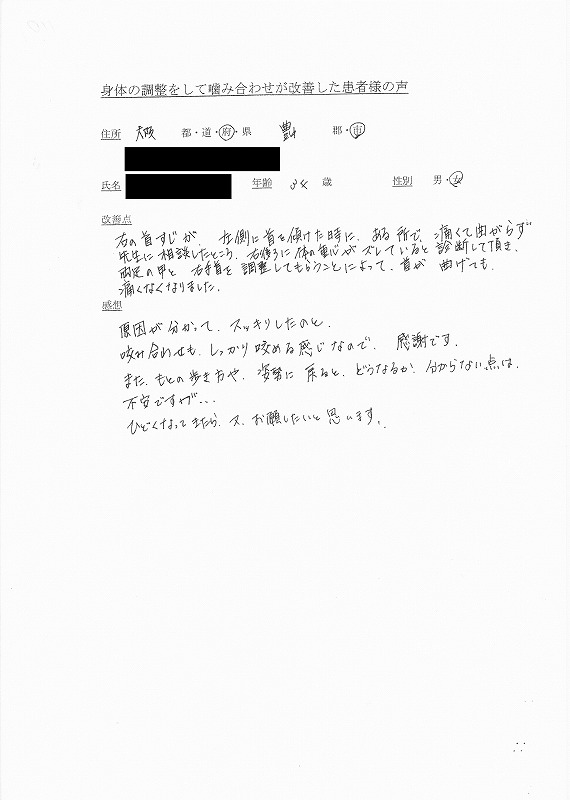 身体の調整をして嚙み合わせが改善した患者様の声
住所 大阪 都・道・府・県 郡・市
氏名 年齢 34 歳 性別 男・女
改善点
右の首すじが、左側に首を傾けた時に、ある所で、痛くて曲がらず
先生に相談したところ、右後ろに体の重心がズレていると診断して頂き、
両足の甲と右手首を調整してもらうことによって、首が曲げても、
痛くなくなりました。
感想
原因が分かって、スッキリしたのと、
咬み合わせも、しっかり咬める感じなので、感謝です。
また、もとの歩き方や、姿勢に戻ると、どうなるか、分からない点は、
不安ですが…
ひどくなってきたら、又、お願したいと思います。